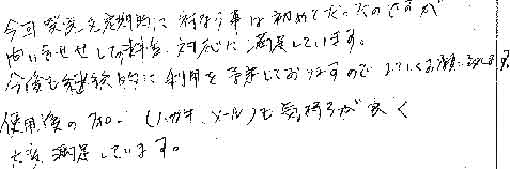 今回 喫茶を定期的に 行なう事は初めてだったのですが
問い合せをしての料金、対応に満足しています。
今後も継続的に利用を予定しておりますのでよろしくお願いします。
使用後のフォロー(ハガキ、メール)も気持ちが良く
大変満足しています。